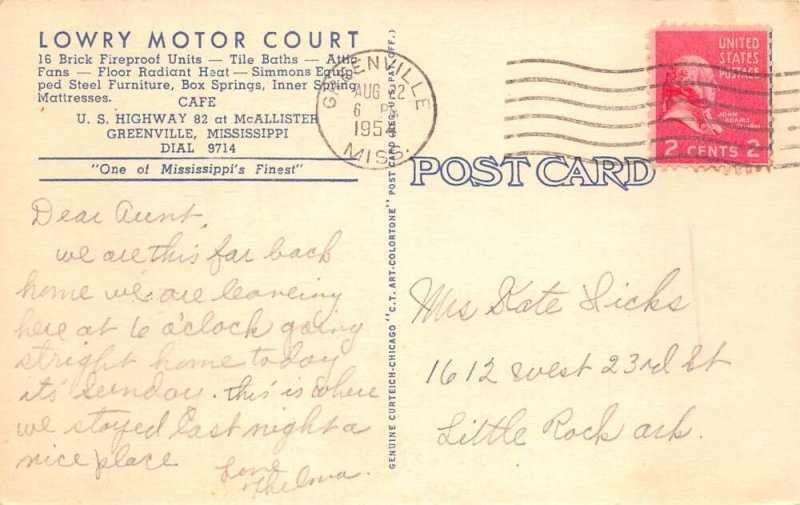 LOWRY MOTOR COURT
16 Brick Fireproof Units — Tile Baths — Attic
Fans — Floor Radiant Heat — Simmons Equip-
ped Steel Furniture, Box Springs, Inner Spring
Mattresses.
CAFE
U. S. HIGHWAY 82 at McALLISTER
GREENVILLE, MISSISSIPPI
DIAL 9714
"One of Mississippi's Finest"
GREENVILLE
AUG 22
6 PM
MISS.
UNITED
STATES
POSTAGE
JOHN
ADAMS
2 CENTS 2
POST CARD
GENUINE CURTEICH-CHICAGO "C.T. ART-COLORTONE" POST CARD (REG. U.S. PAT. OFF.)
Dear Aunt,
we are this far back
home we are leaveing
here at 6 o'clock going
stright home today
it's sunday. this is where
we stayed last night a
nice place
Love
Thelma.
Mrs Kate Hicks
1612 west 23rd St
Little Rock ark.